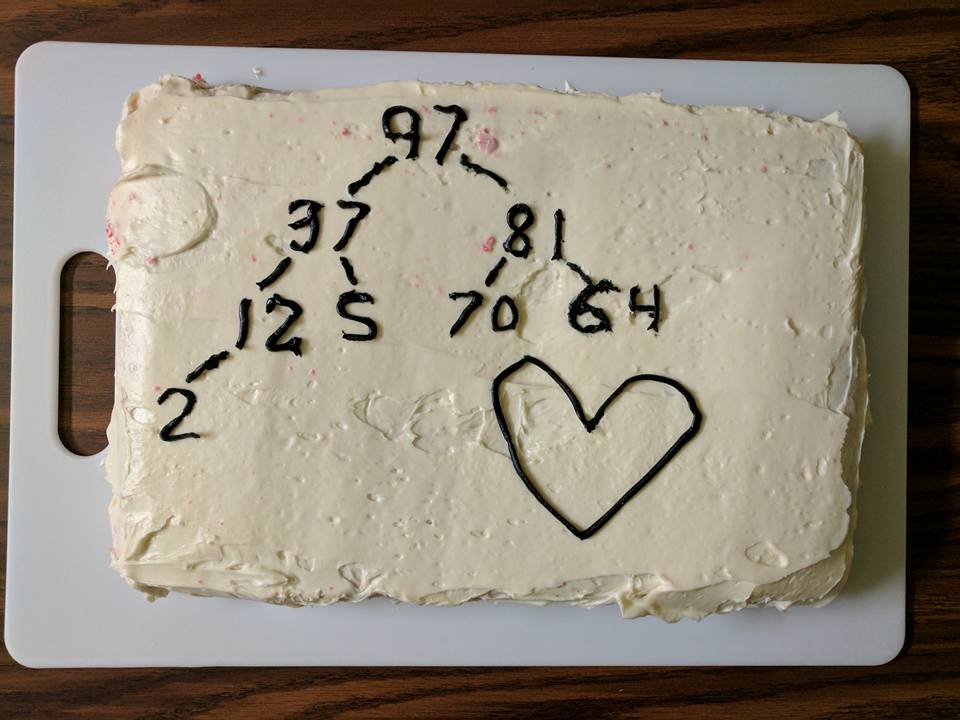 97
37 81
12 5 70 64
2